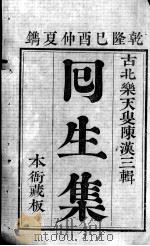 乾隆已酉仲夏鐫
古北樂天叟陳漢三輯
回生集
本衙藏板